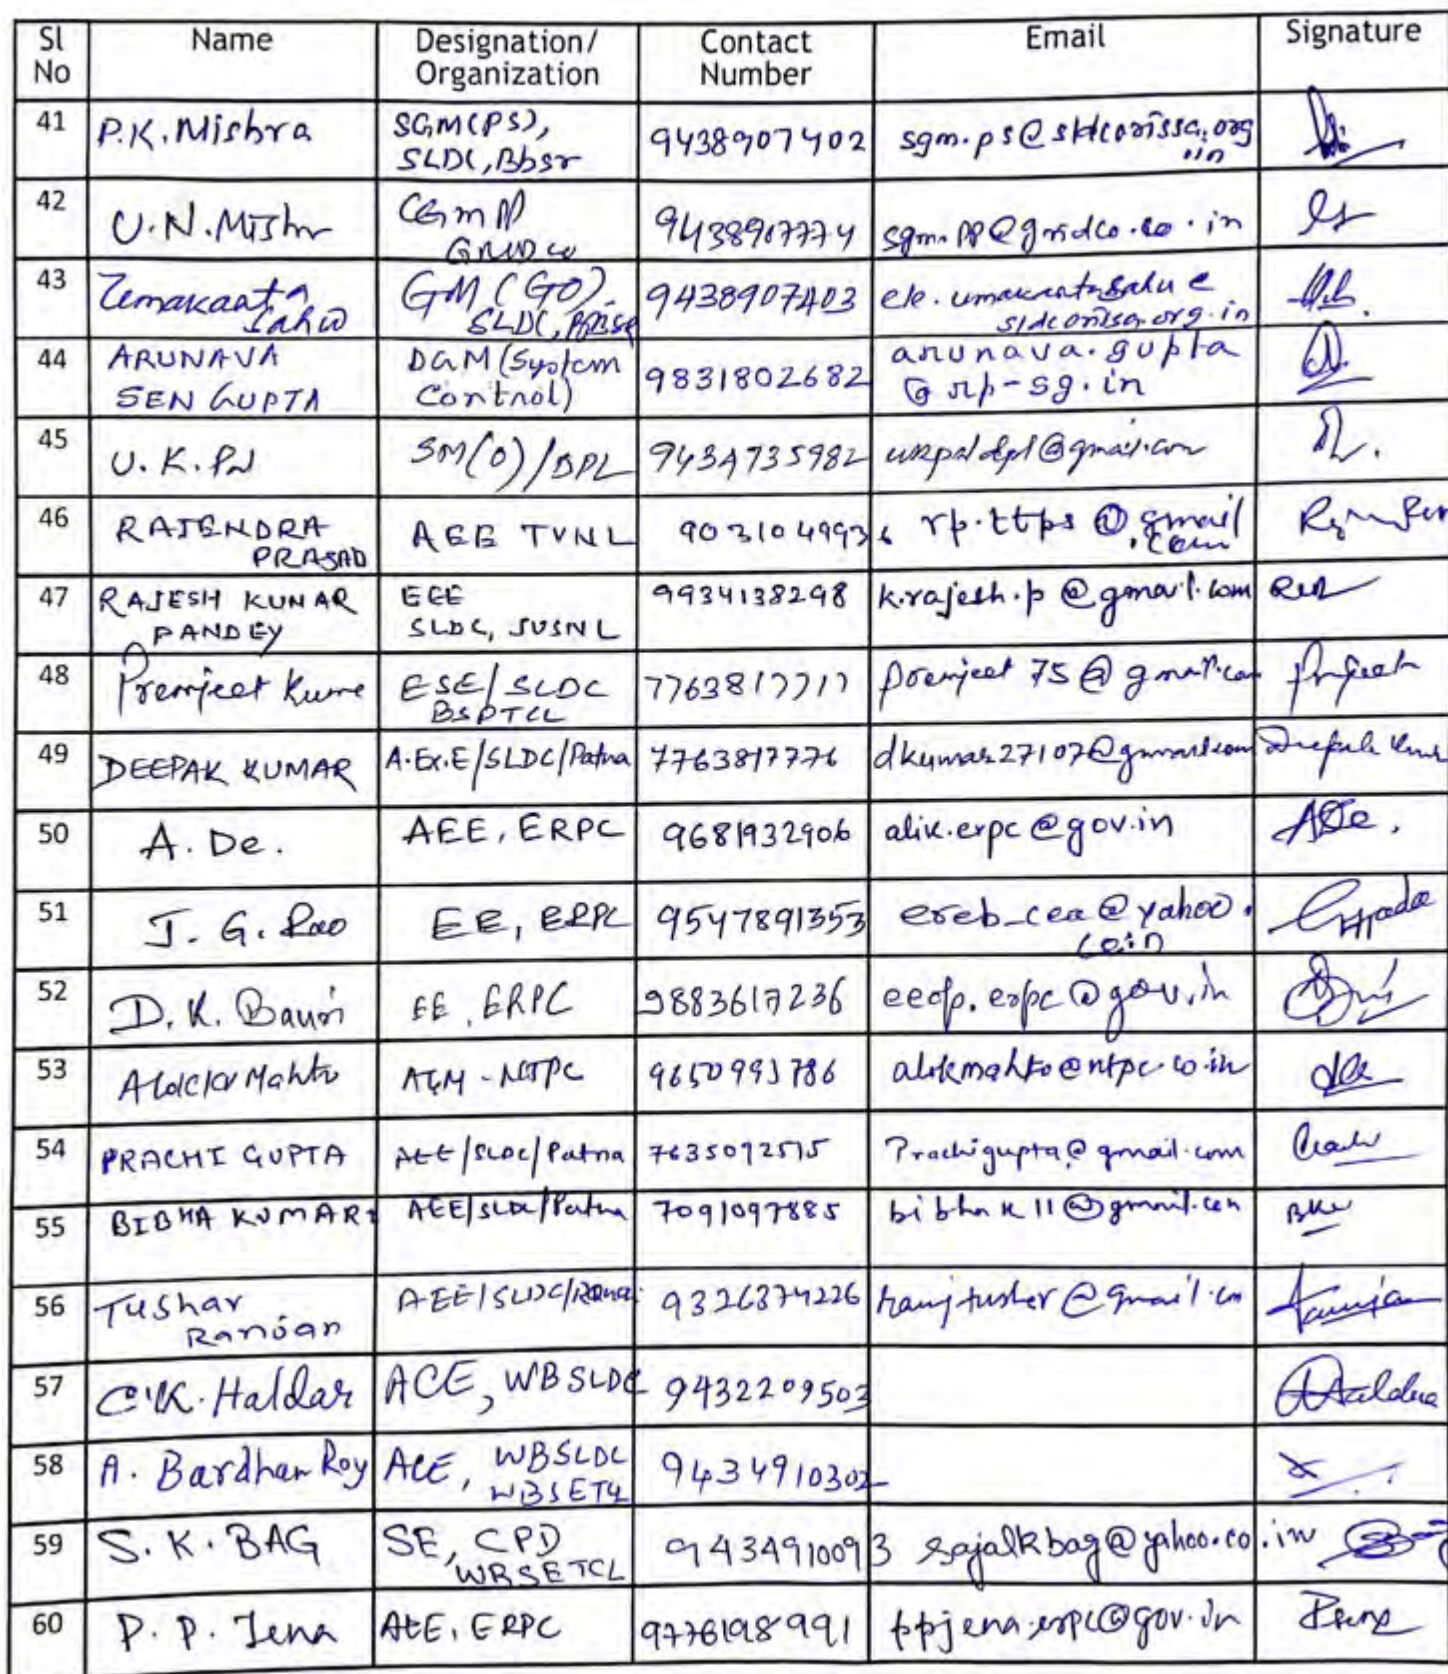 Sl No Name Designation/ Organization Contact Number Email Signature
41 P.K. Mishra SGM(PS), SLDC, Bbsr 9438907402 sgm.ps@sldcorissa.org.in
42 U.N. Mishr 9438907774 sgm.pp@gridco.co.in
43 Umakaanta Sahu GM (GO) SLDC, 9438907403 ele.umakantasahu@sldcorissa.org.in
44 ARUNAVA SEN GUPTA DGM (System Control) 9831802682 arunava.gupta@rp-sg.in
45 U.K. Pal SM(O)/DPL 9434735982 ukpaldpl@gmail.com
46 RAJENDRA PRASAD AEE TVNL 9031049936 rp.ttps@gmail.com
47 RAJESH KUMAR PANDEY EEE SLDC, JUSNL 9934138298 k.rajesh.p@gmail.com
48 Premjeet Kumar ESE/SLDC BSPTCL 7763817717 premjeet75@gmail.com
49 DEEPAK KUMAR A.Ex.E/SLDC/Patna 7763817776 dkumar27107@gmail.com Deepak Kumar
50 A. De. AEE, ERPC 9681932906 alik.erpc@gov.in ADe.
51 J. G. Rao EE, ERPC 9547891353 ereb_cea@yahoo.co.in
52 D. K. Bauri EE, ERPC 9883617236 eeop.erpc@gov.in
53 Alok Kr Mahto AGM - NTPC 9650993786 alokmahto@ntpc.co.in
54 PRACHI GUPTA AEE/SLDC/Patna 7635092515 Prachigupta@gmail.com
55 BIBHA KUMARI AEE/SLDC/Patna 7091097885 bibhak11@gmail.com
56 Tushar Ranjan AEE/SLDC/Ranchi 9326374226 ranjtusher@gmail.com
57 C.K. Haldar ACE, WBSLDC 9432209503 Haldar
58 A. Bardhan Roy ACE, WBSLDC WBSETCL 9434910302
59 S. K. BAG SE, CPD WBSETCL 9434910093 sajalkbag@yahoo.co.in
60 P. P. Jena AEE, ERPC 9776198991 ppjena.erpc@gov.in